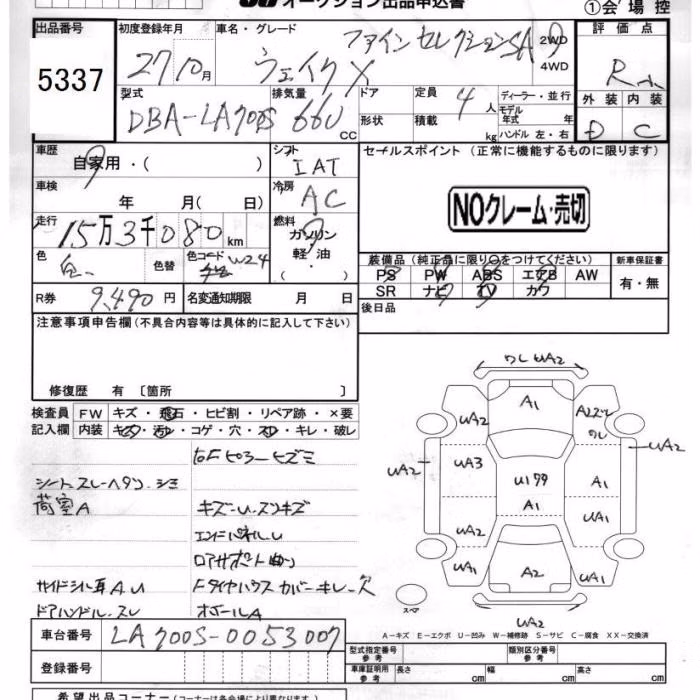 オークション出品申込書
①会場控
出品番号 5337
初度登録年月 27 10月
車名・グレード ウェイク X ファインセレクションSA
2WD
4WD
評価点 R
外装 D 内装 C
型式 DBA-LA700S
排気量 660 cc
ドア
形状
定員 4人
積載 kg
ディーラー・並行
モデル年式 年
ハンドル 左・右
車歴 自家用・( )
シフト IAT
車検 年 月( 日)
冷房 AC
走行 15万3千080km
燃料 ガソリン
軽油
・( )
色 白
色替
色コード W24
R券 9,490円
名変通知期限 月 日
セールスポイント (正常に機能するものに限ります)
NOクレーム・売切
装備品 (純正品に限り○をつけてください)
PS PW ABS エアB AW
SR ナビ TV カワ
新車保証書
有・無
後日品
注意事項申告欄(不具合内容等は具体的に記入して下さい)
修復歴 有 〔箇所 〕
検査員記入欄
FW キズ・飛石・ヒビ割・リペア跡・×要
内装 キズ・汚レ・コゲ・穴・スレ・キレ・破レ
右Fピラーヒズミ
シートスレ・ヘタリ・シミ
荷室A
キズ・U・スリキズ
エンドパネルU
ロアサポート曲り
サイドシル耳A.U
Fタイヤハウスカバーキレ・欠
ドアハンドル・スレ
ボールA
ワレ UA2
UA2 A1 A2ズレ
ワレ
UA2 UA3 U177 A1 UA2
A1
UA2 UA1
UA1 A2 UA1
スペア
UA2
A−キズ E−エクボ U−凹み W−補修跡 S−サビ C−腐食 XX−交換済
車台番号 LA700S-0053007
登録番号
型式指定番号 参考
類別区分番号 参考
車庫証明用 参考 長さ cm 幅 cm 高さ cm
希望出品コーナー(コーナーは各会場で異なります)